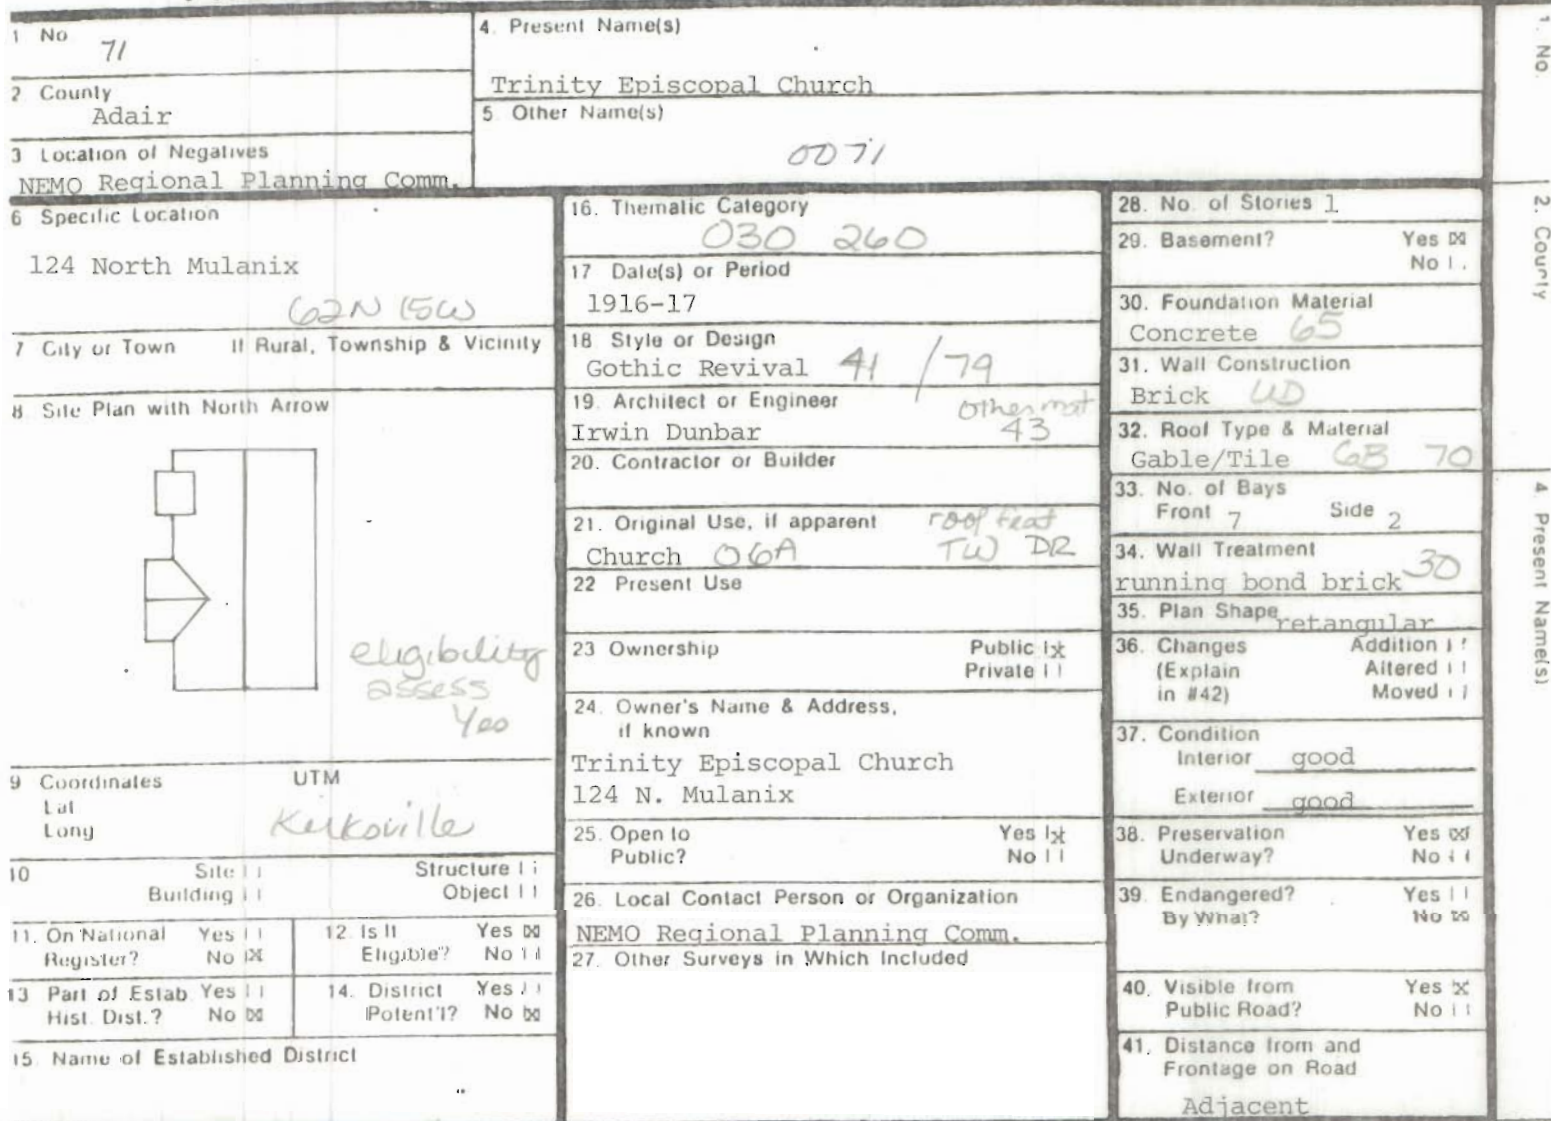 1 No
71
2 County
Adair
3 Location of Negatives
NEMO Regional Planning Comm.
4. Present Name(s)
Trinity Episcopal Church
5 Other Name(s)
0071
6 Specific Location
124 North Mulanix
62N 15W
7 City or Town If Rural, Township & Vicinity
8 Site Plan with North Arrow
eligibility
assess
Yes
9 Coordinates UTM
Lat
Long
Kirksville
10 Site Structure
Building Object
11. On National Yes
Register? No X
12. Is It Yes X
Eligible? No
13 Part of Estab Yes
Hist. Dist.? No X
14. District Yes
Potent'l? No X
15. Name of Established District
16. Thematic Category
030 260
17 Date(s) or Period
1916-17
18 Style or Design
Gothic Revival 41 / 79
19. Architect or Engineer
other mat
Irwin Dunbar 43
20. Contractor or Builder
21. Original Use, if apparent
roof feat
Church 06A TW DR
22 Present Use
23 Ownership Public x
Private
24. Owner's Name & Address,
if known
Trinity Episcopal Church
124 N. Mulanix
25. Open to Yes x
Public? No
26. Local Contact Person or Organization
NEMO Regional Planning Comm.
27. Other Surveys in Which Included
28. No. of Stories 1
29. Basement? Yes X
No
30. Foundation Material
Concrete 65
31. Wall Construction
Brick UD
32. Roof Type & Material
Gable/Tile GB 70
33. No. of Bays
Front 7 Side 2
34. Wall Treatment
running bond brick 30
35. Plan Shape retangular
36. Changes Addition
(Explain Altered
in #42) Moved
37. Condition
Interior good
Exterior good
38. Preservation Yes X
Underway? No
39. Endangered? Yes
By What? No X
40. Visible from Yes X
Public Road? No
41. Distance from and
Frontage on Road
Adjacent
1. No.
2. County
4. Present Name(s)